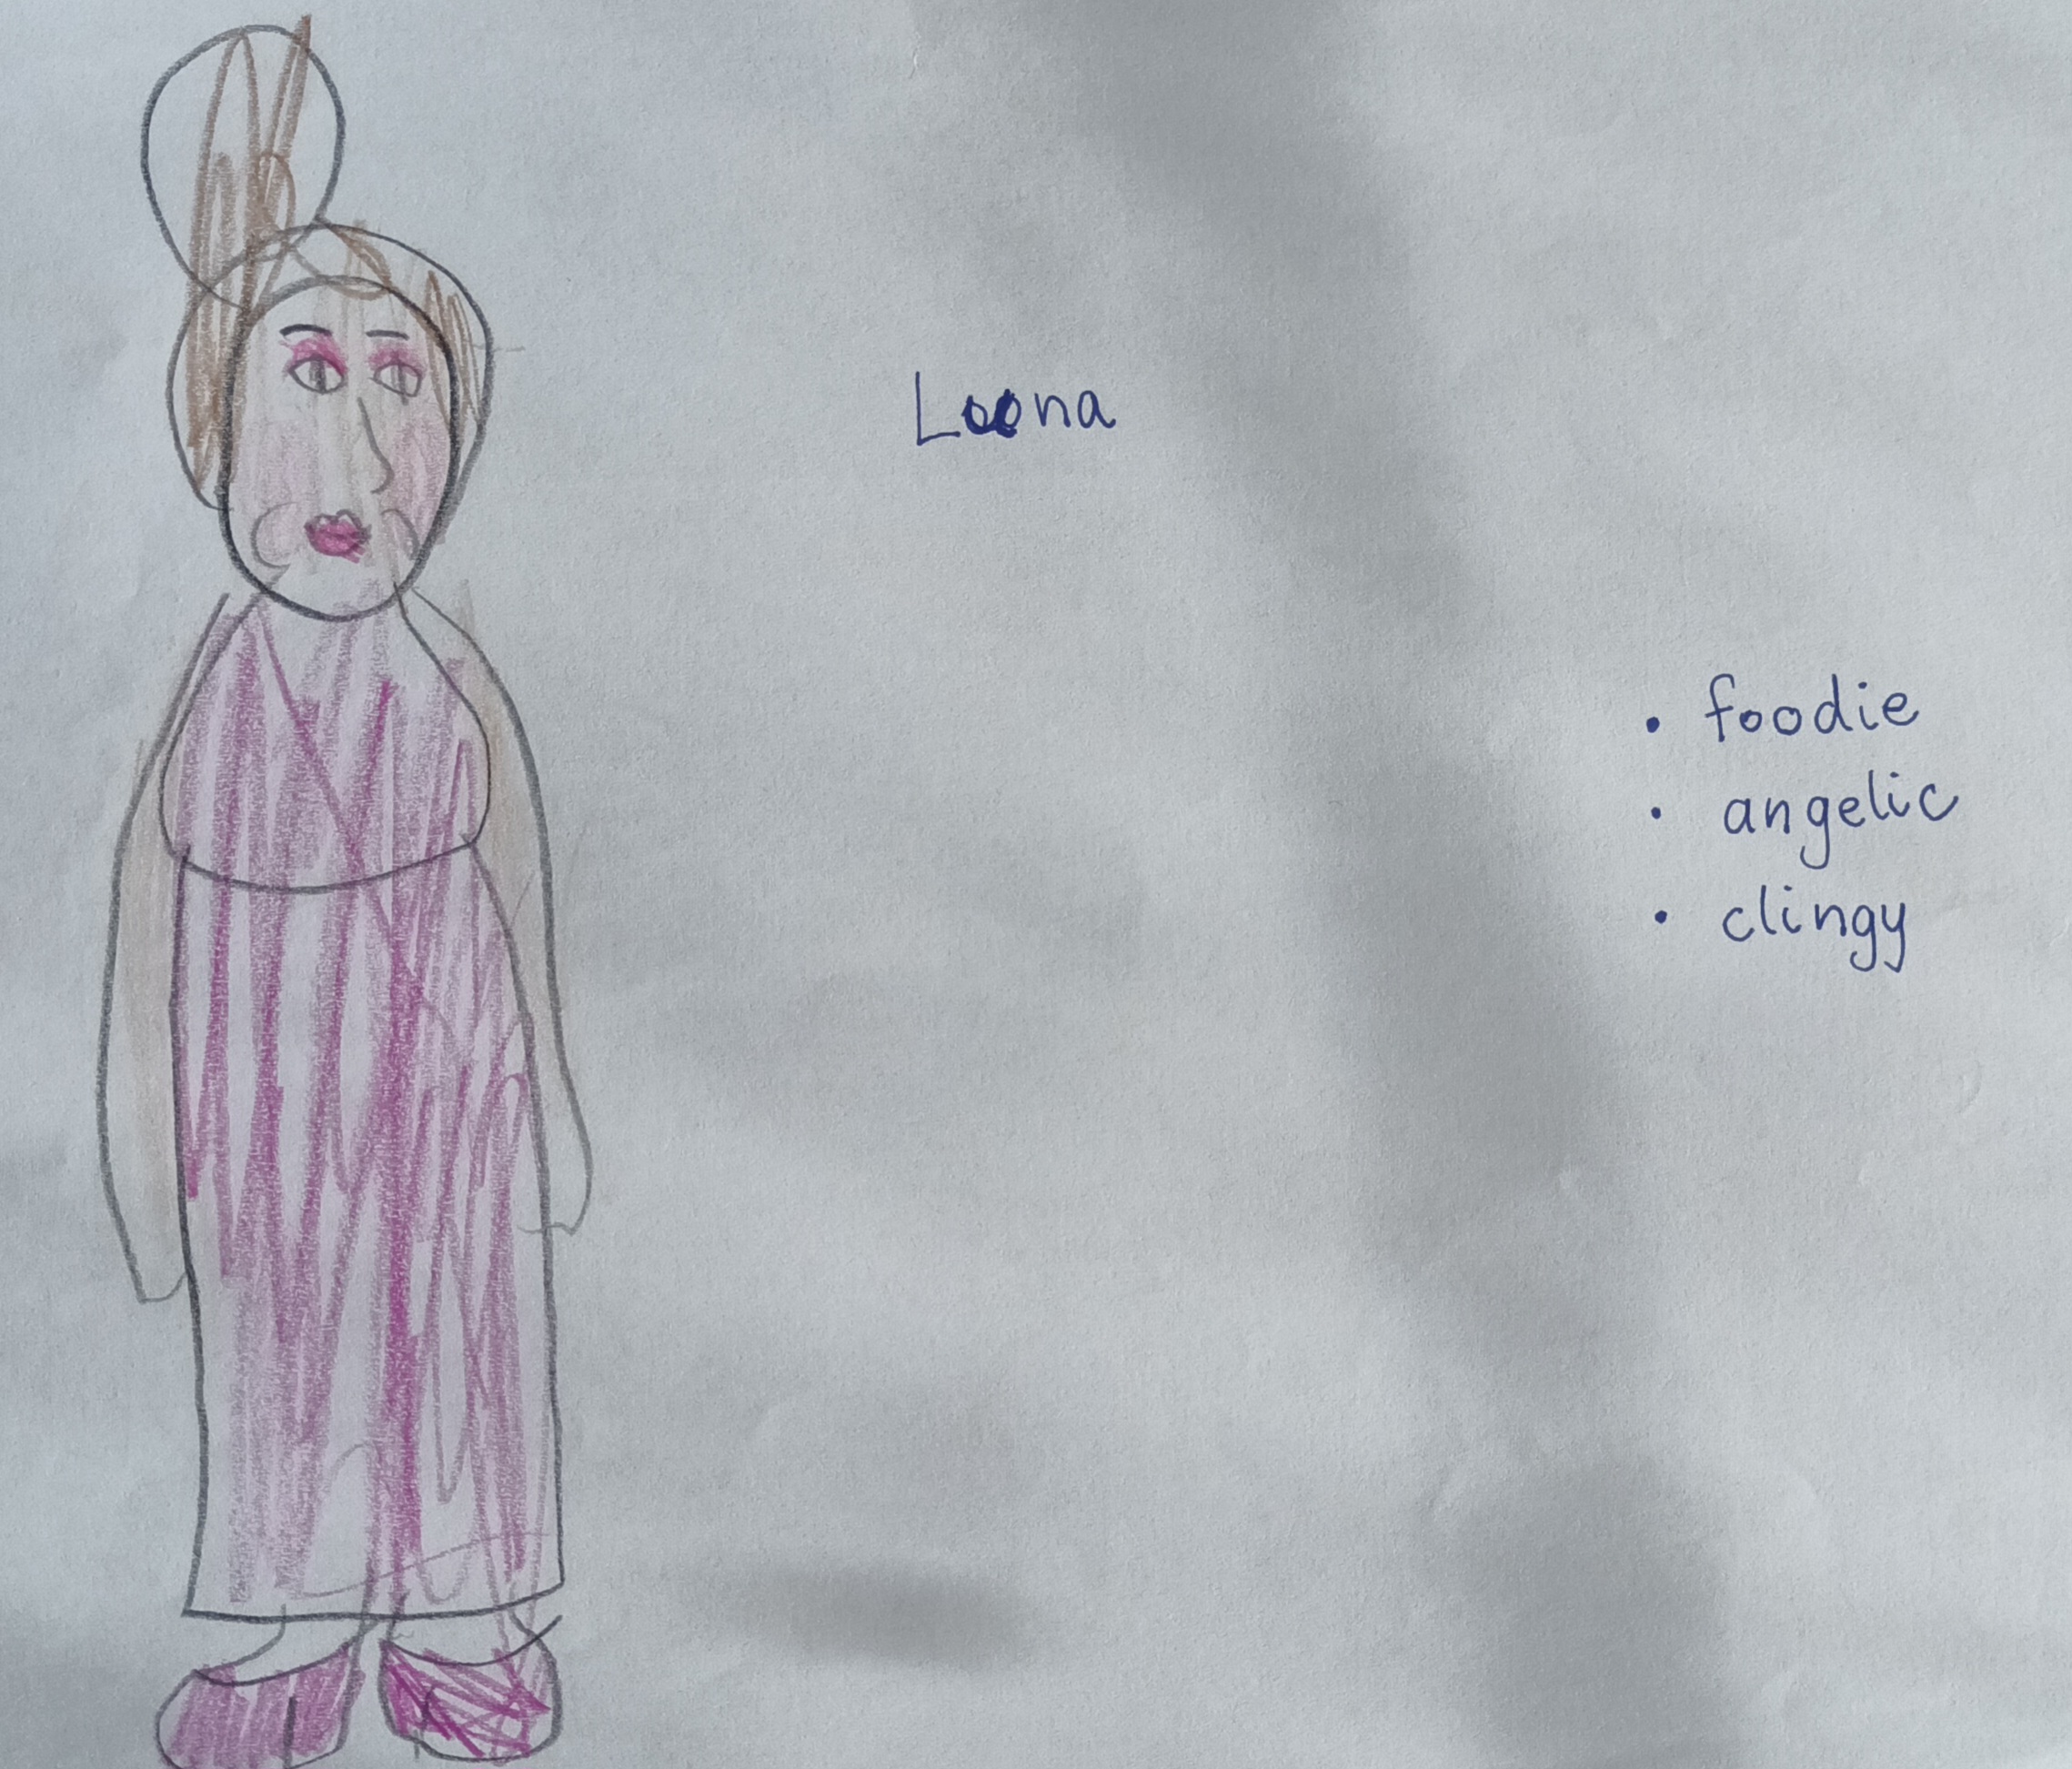 Loona
• foodie
• angelic
• clingy